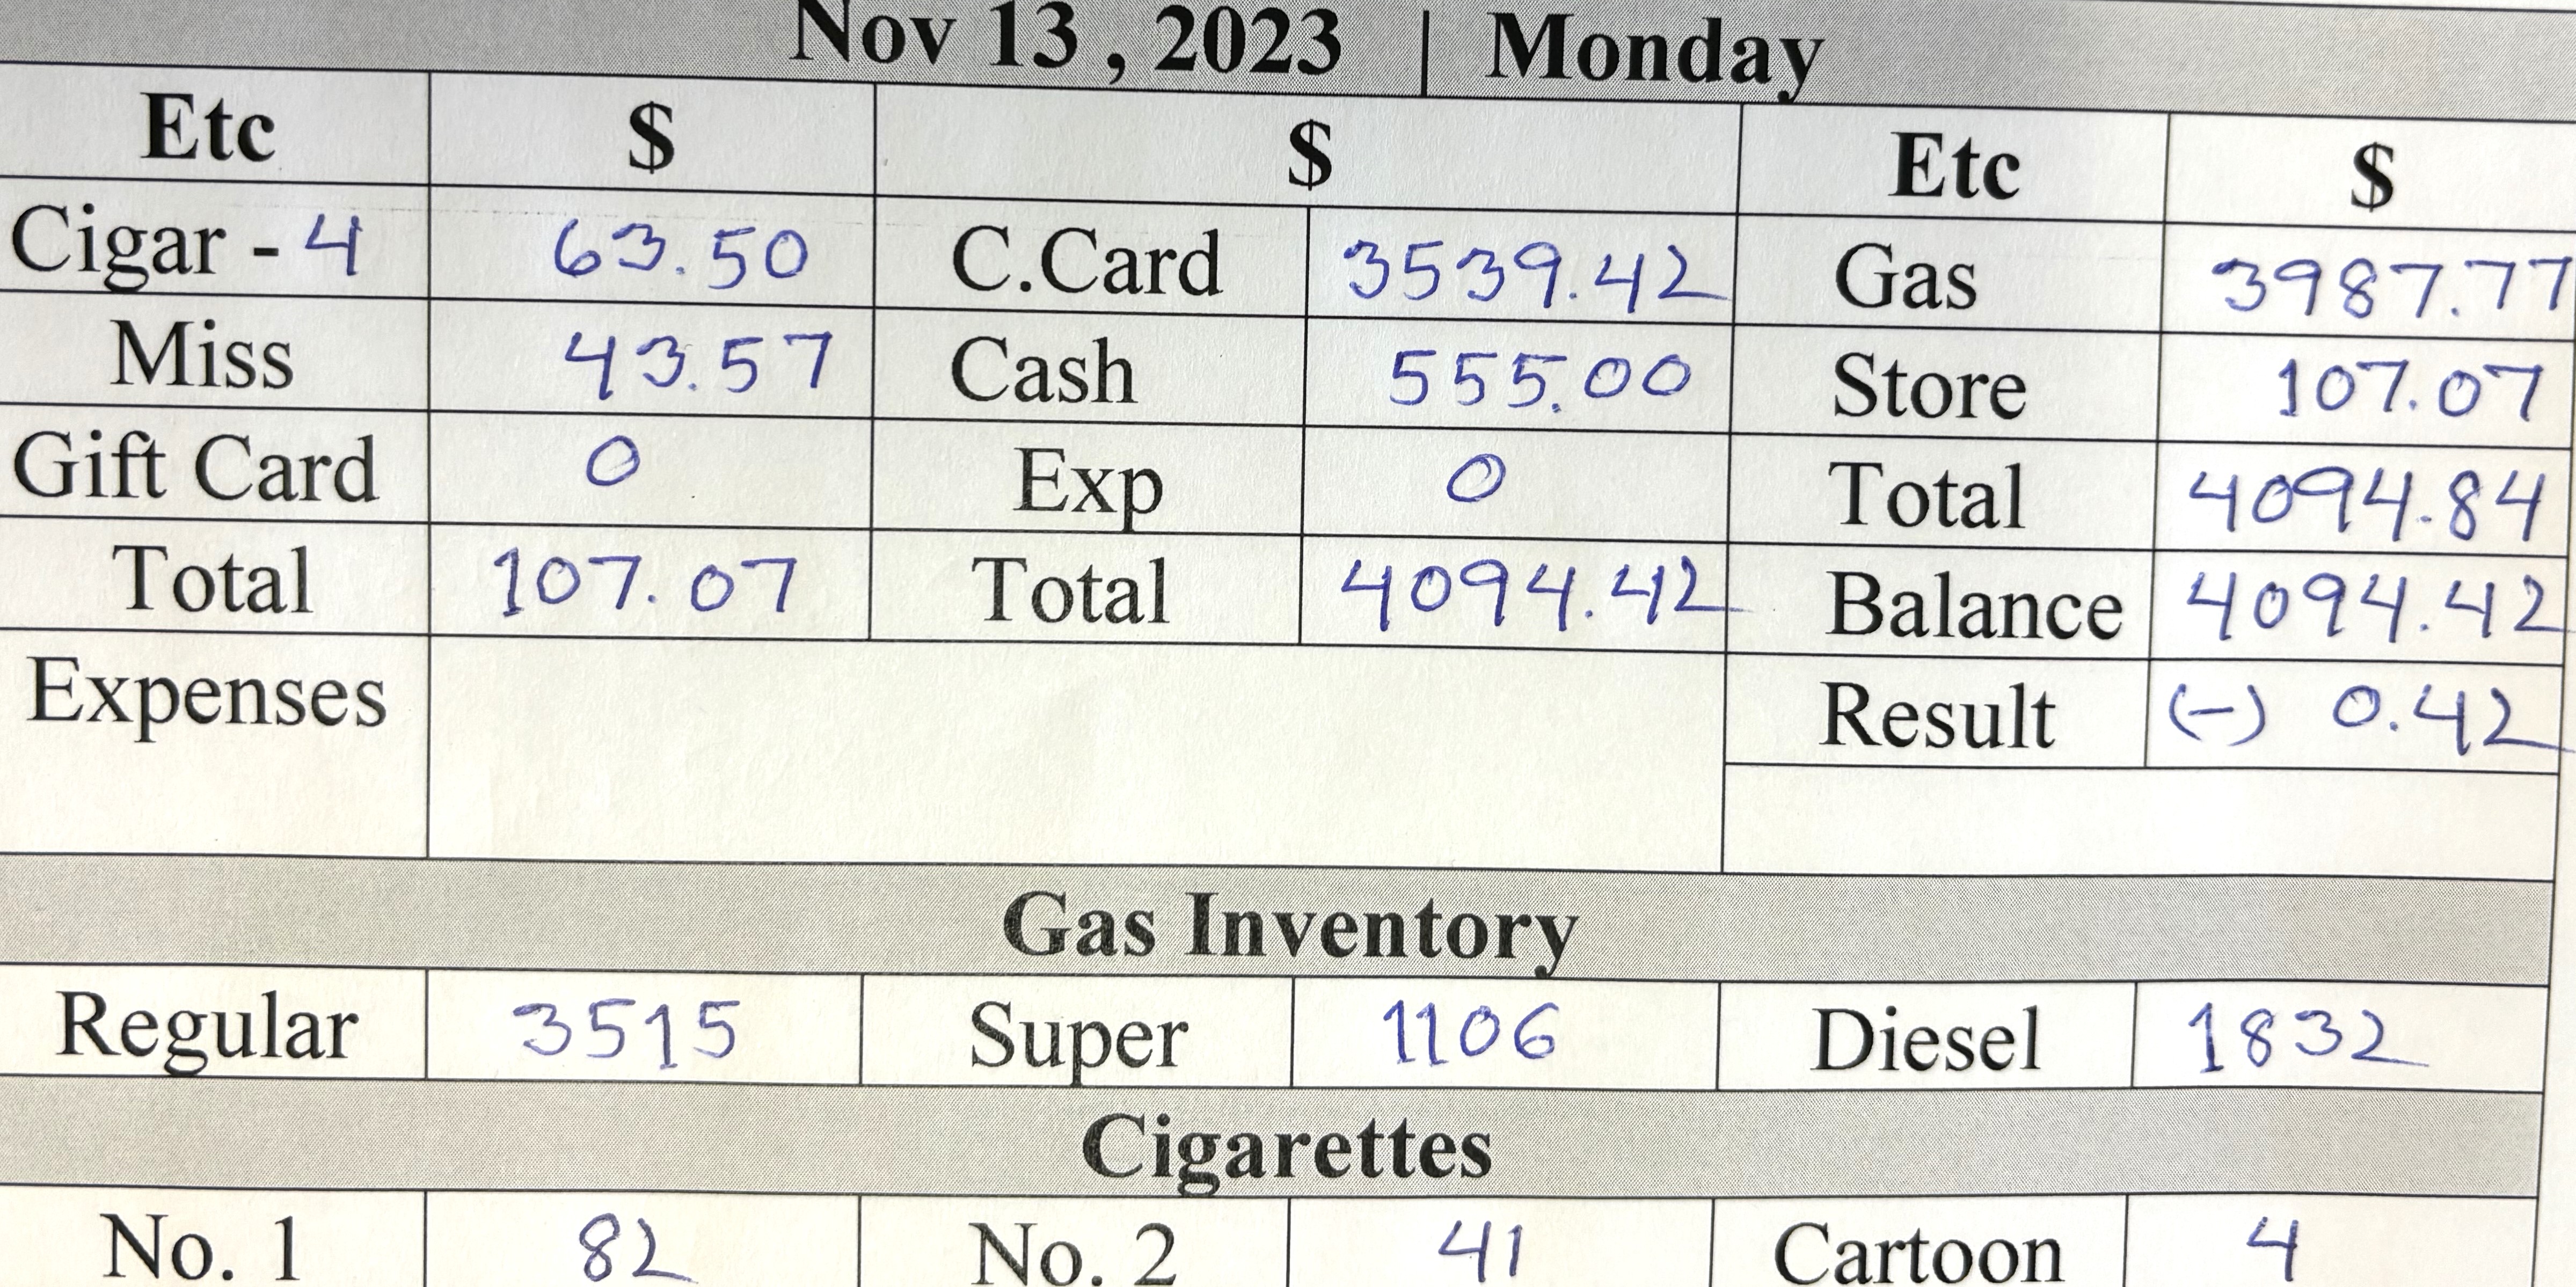 Nov 13 , 2023 | Monday
Etc $ $ Etc $
Cigar - 4 63.50 C.Card 3539.42 Gas 3987.77
Miss 43.57 Cash 555.00 Store 107.07
Gift Card 0 Exp 0 Total 4094.84
Total 107.07 Total 4094.42 Balance 4094.42
Expenses Result (-) 0.42
Gas Inventory
Regular 3515 Super 1106 Diesel 1832
Cigarettes
No. 1 82 No. 2 41 Cartoon 4